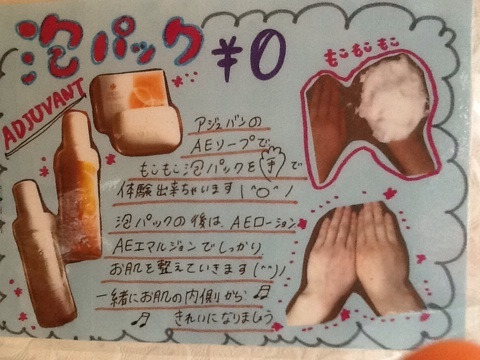 泡パック ¥0
ADJUVANT
もこもこもこ
アジュバンの
AEソープで
もこもこ泡パックを手で
体験出来ちゃいます(^O^)/
泡パックの後は、AEローション
AEエマルジョンでしっかり
お肌を整えていきます(^^)/
一緒にお肌の内側から♬
♬ きれいになりましょう